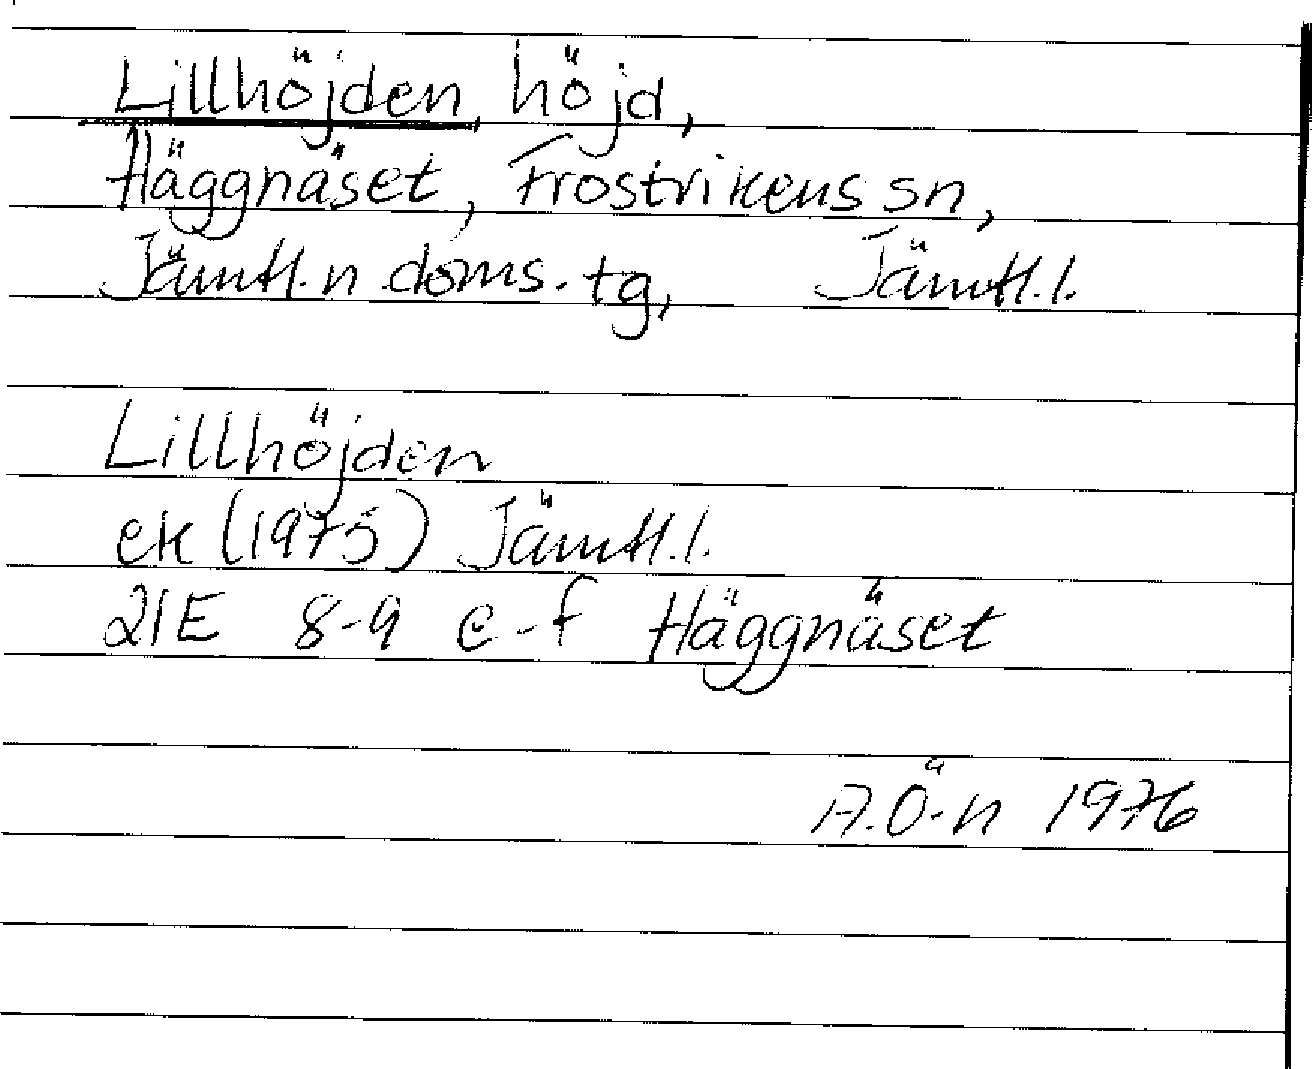 Lillhöjden, höjd,
Häggnäset, Frostvikens sn,
Jämtl.n doms. tg, Jämtl.l.
Lillhöjden
ek (1975) Jämtl.l.
21E 8-9 e-f Häggnäset
A.Ö-n 1976